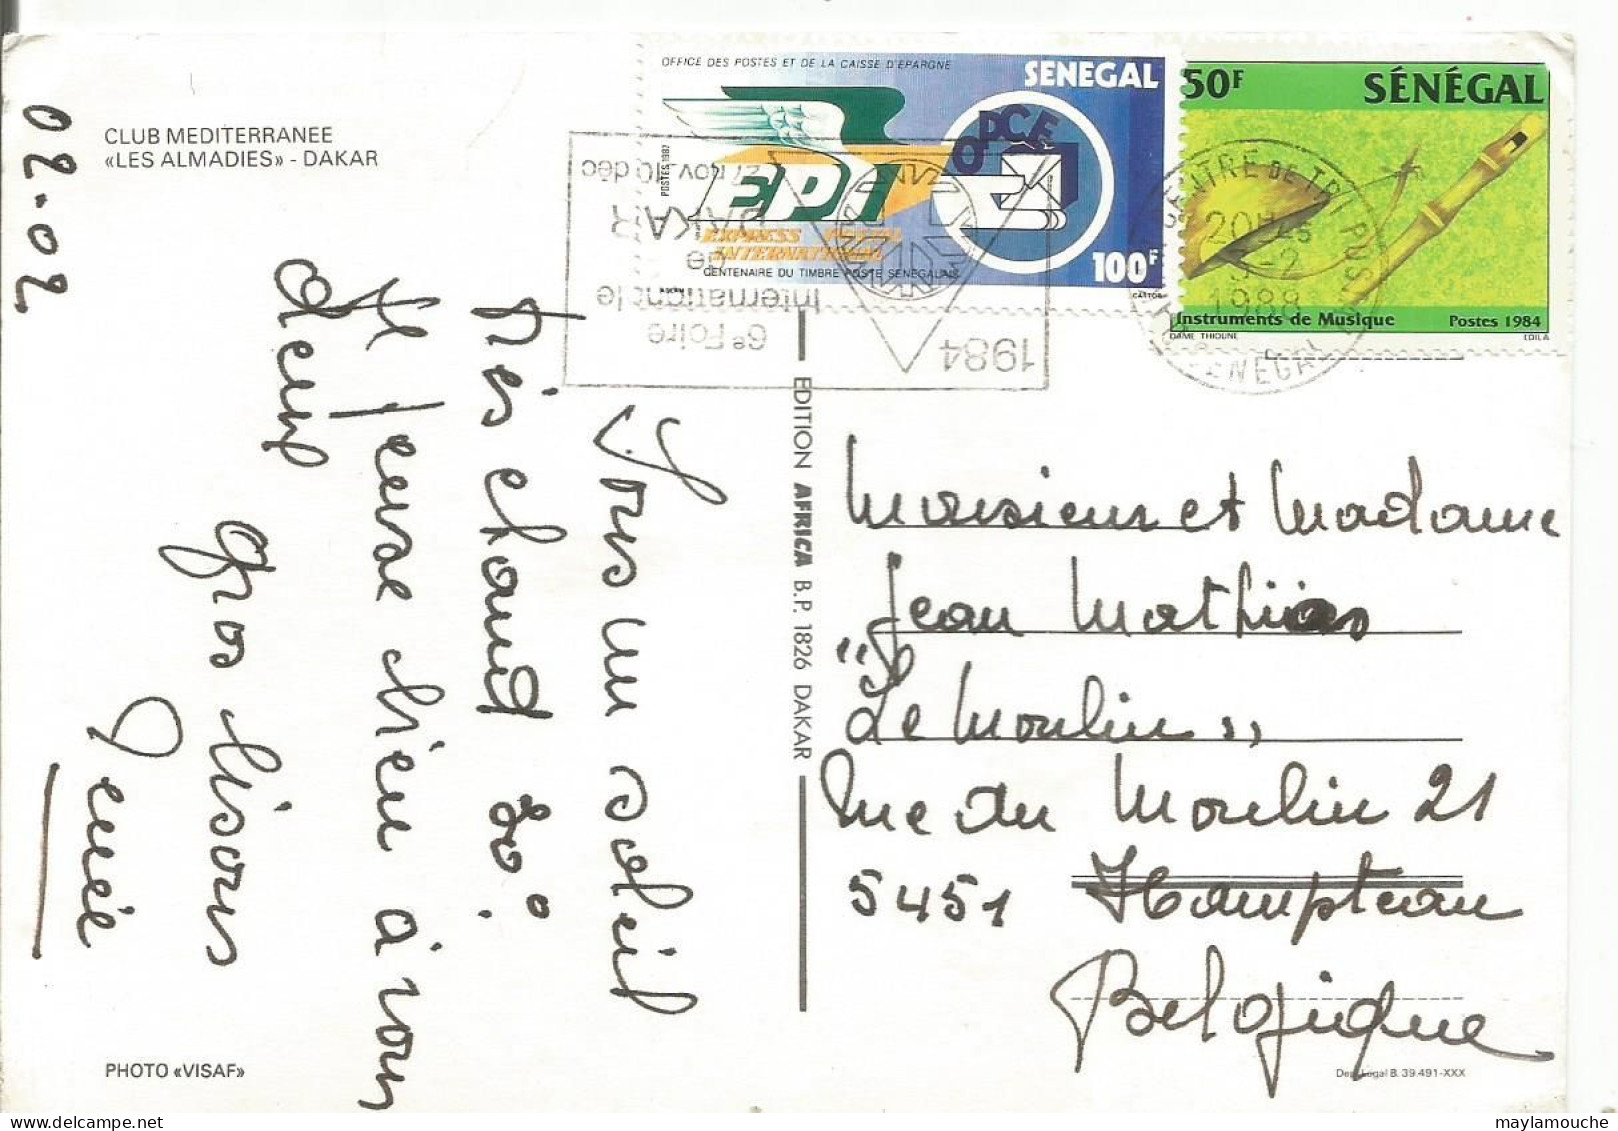 CLUB MEDITERRANEE
«LES ALMADIES» - DAKAR
02.02
Sous un soleil
très chaud 30°.
Je pense bien à vous
deux
gros bisous
Renée
PHOTO «VISAF»
EDITION AFRICA B.P. 1826 DAKAR
OFFICE DES POSTES ET DE LA CAISSE D'EPARGNE
SENEGAL
OPCE
POSTES 1987
EPI
EXPRESS POSTAL
INTERNATIONAL
CENTENAIRE DU TIMBRE POSTE SENEGALAIS
100F
CARTOR
50F
SÉNÉGAL
Instruments de Musique
Postes 1984
DAME THIOUNE
EDILA
1984
6e Foire
Internationle
de
DAKAR
27 nov. 10 déc
CENTRE DE TRI POSTAL
20H
-2
1988
SENEGAL
Monsieur et Madame
Jean Mathias
"Le Moulin"
Rue du Moulin 21
5451 Hampteau
Belgique
Dep. Legal B. 39.491-XXX
www.delcampe.net
maylamouche